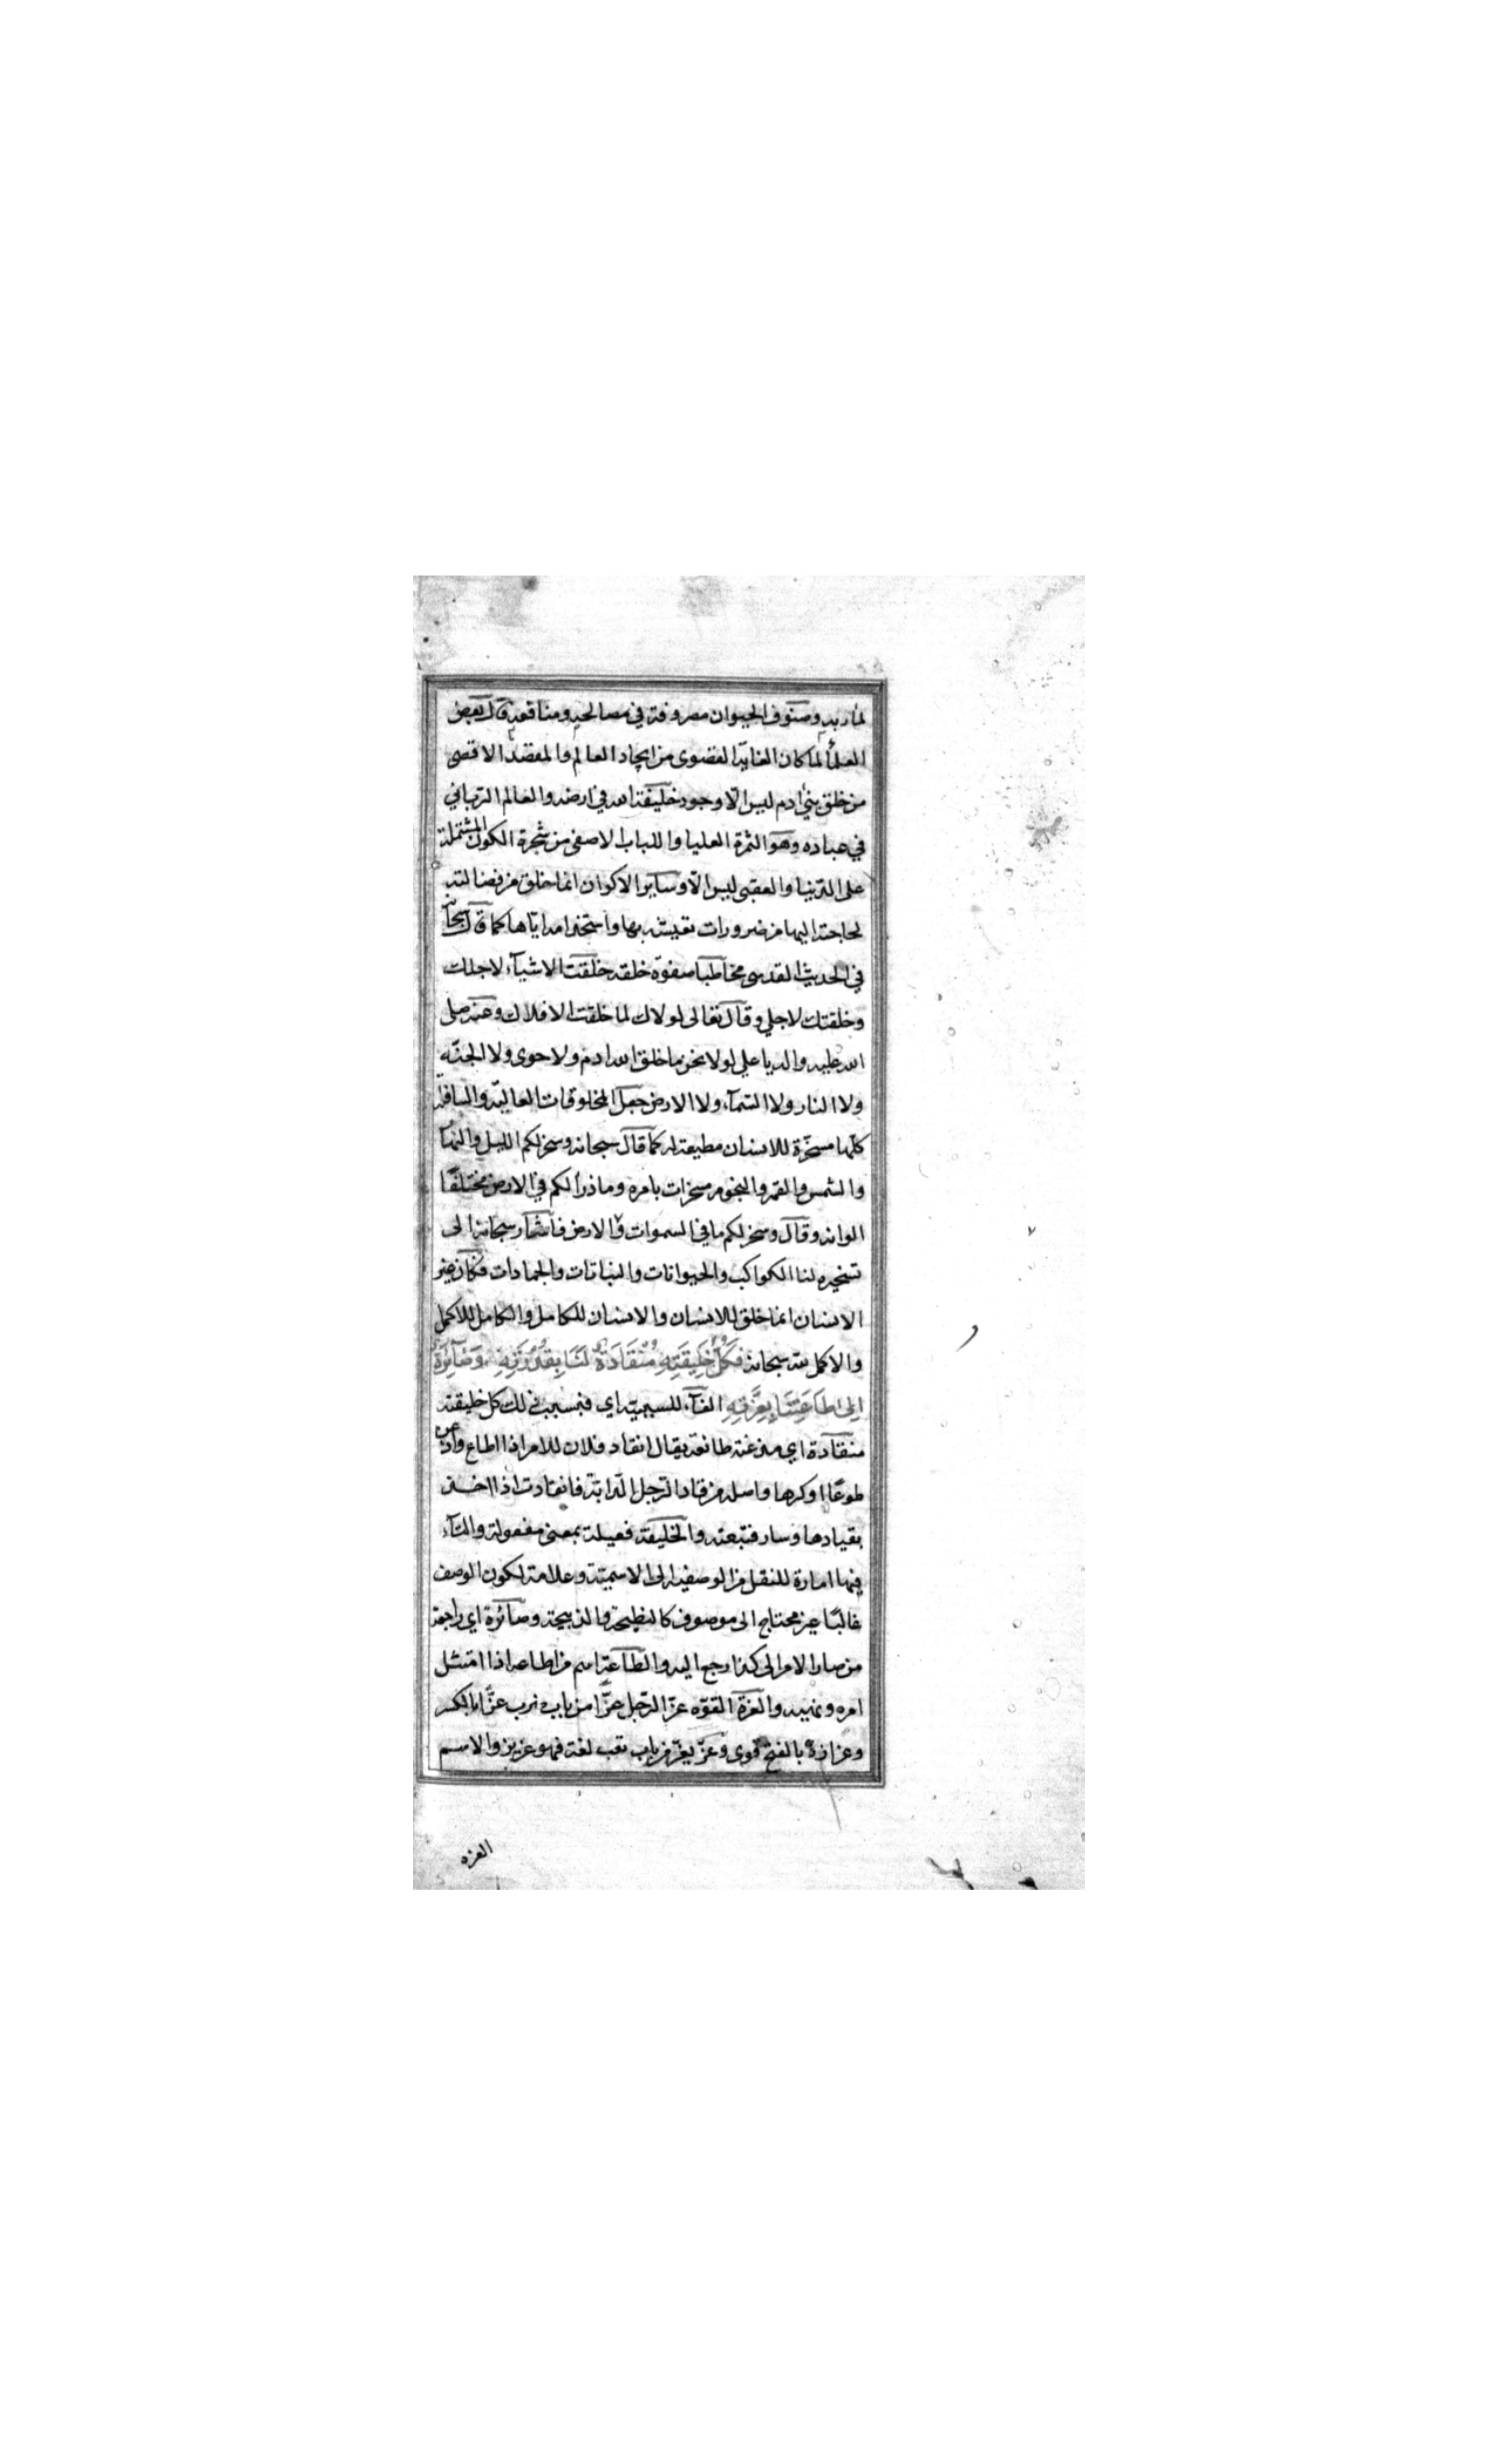 لمأربه وصنوف الحيوان مصروفة في مصالحه ومنافعه قال بعض
العلماء لما كان الغاية القصوى من ايجاد العالم والمقصد الاقصى
من خلق بني ادم ليس الا وجود خليفة الله في ارضه والعالم الرباني
في عباده وهو الثمرة العليا واللباب الاصفى من شجرة الكون المشتملة
على الدنيا والعقبى ليس الا وساير الاكوان انما خلق من فضالته
لحاجته اليها من ضرورات تعيشه بها واستخدامه اياها كما قال سبحانه
في الحديث القدسي مخاطبا صفوة خلقه خلقت الاشيآء لاجلك
وخلقتك لاجلي وقال تعالى لولاك لما خلقت الافلاك وعنه صلى
الله عليه واله يا علي لولا نحن ما خلق الله ادم ولا حوى ولا الجنه
ولا النار ولا السمآء ولا الارض جعل المخلوقات العالية والسافلة
كلها مسخرة للانسان مطيعة له كما قال سبحانه وسخر لكم الليل والنهار
والشمس والقمر والنجوم مسخرات بامره وما ذرأ لكم في الارض مختلفا
الوانه وقال وسخر لكم ما في السموات و الارض فاشار سبحانه الى
تسخيره لنا الكواكب والحيوانات والنباتات والجمادات فكان غير
الانسان انما خلق للانسان والانسان للكامل والكامل للاكمل
والاكمل لله سبحانه فَكُلُّ خَلِيقَتِهِ مُنْقَادَةٌ لَنَا بِقُدْرَتِهِ وَصَآئِرَةٌ
اِلى طَاعَتِنَا بِعِزَّتِهِ الفآء للسببية اي فبسبب ذلك كل خليقته
منقادة اي مذعنة طائعة يقال انقاد فلان للامر اذا اطاع واذعن
طوعا او كرها واصله من قاد الرجل الدابة فانقادت اذا اخذ
بقيادها وسار فتبعته والخليقة فعيلة بمعنى مفعولة والتآء
فيها امارة للنقل من الوصفية الى الاسمية وعلامة لكون الوصف
غالبا غير محتاج الى موصوف كالنطيحة والذبيحة وصائرة اي راجعة
من صار الامر الى كذا رجع اليه والطاعة اسم من اطاعه اذا امتثل
امره ونهيه والعزة القوه عز الرجل عزا من باب ضرب عزا بالكسر
وعزازة بالفتح قوى وعز يعز من باب تعب لغة فهو عزيز والاسم
العزه